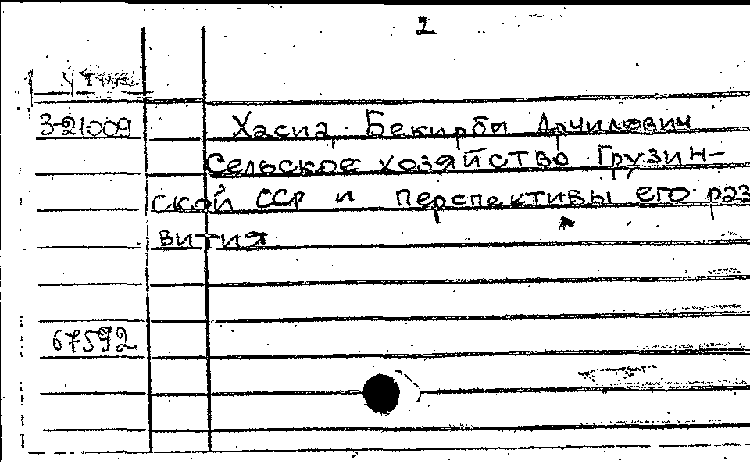 2
3-21009 Хасиа, Бекирби Арчилович
Сельское хозяйство Грузин-
ской ССР и перспективы его раз
вития
67592